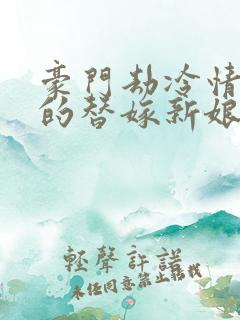 豪門劫冷情
的替嫁新娘
輕聲許諾
未经同意禁止转载